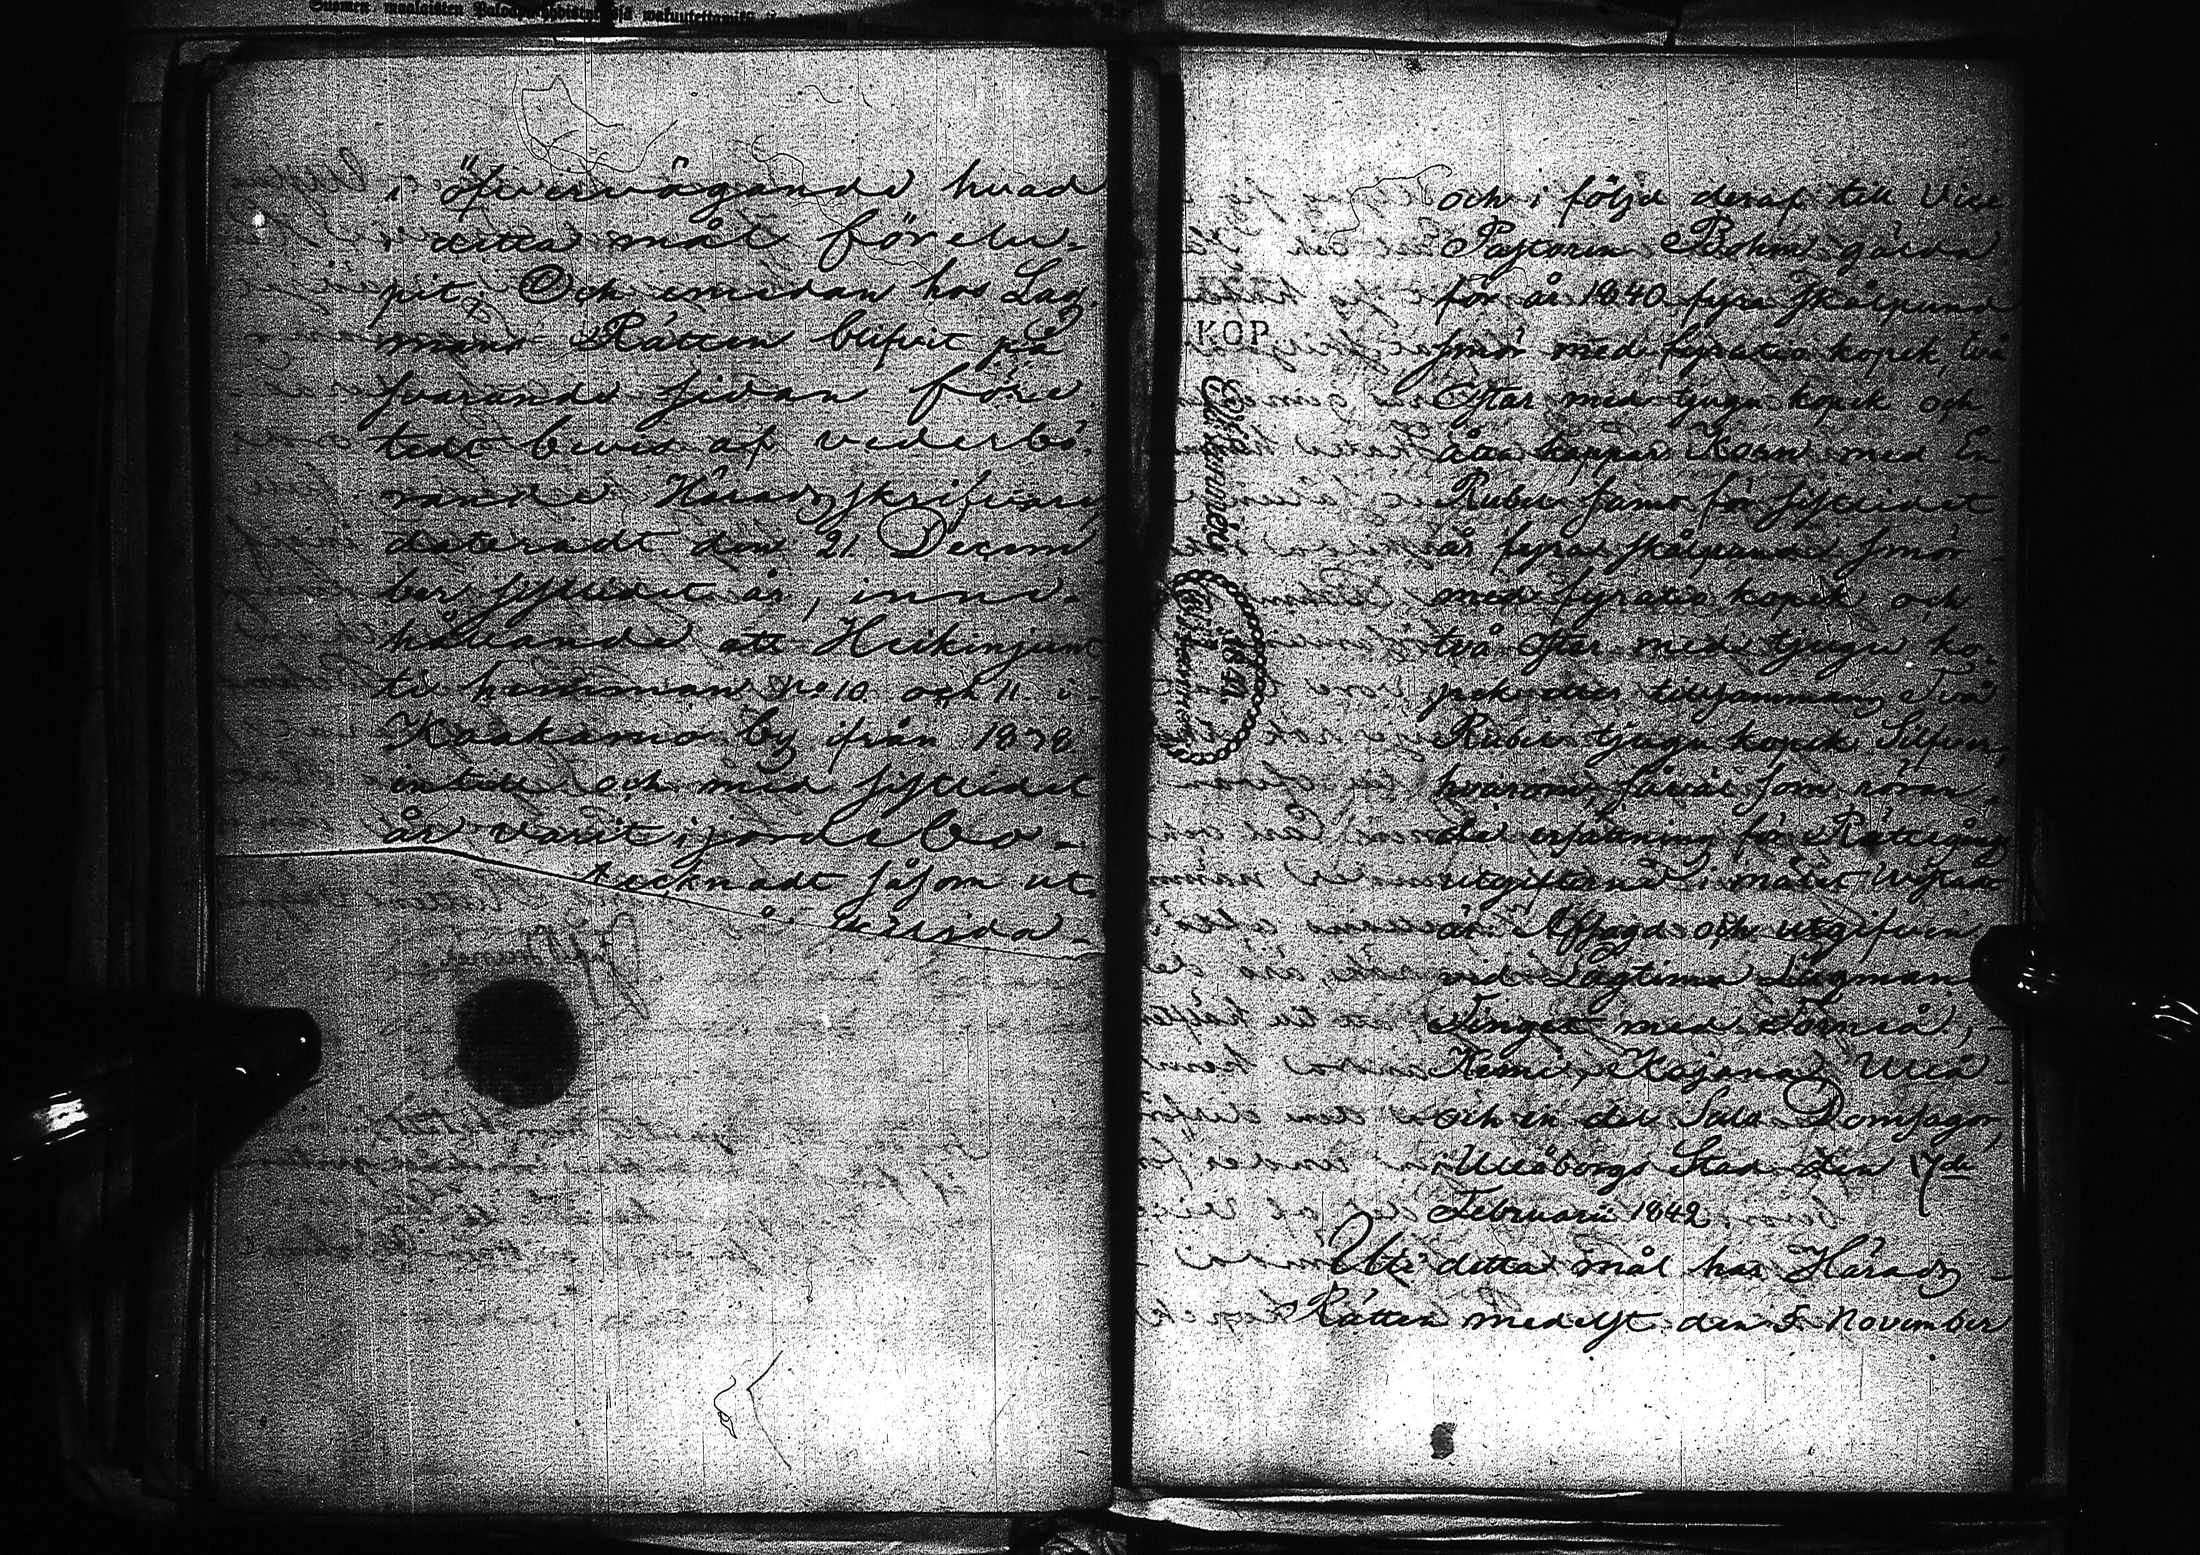 i öfvervägande hvad
i detta mål förelu-
pit. Och emedan hos Lag-
mans Rätten blifvit på
svarande sidan före
tedt bevis af vederbö-
rande Häradsskrifvare,
dateradt den 21 Decem
ber sistlidet år, inne-
hållande att Heikinjunt
ti hemman No 10. och 11. i
Kaakamo by ifrån 1838
intill och med sistlidet
år varit i jordebo-
tecknadt såsom ut
och i följd deraf till Vice
Pastorn Bohm gälda
för år 1840 fyra skålpund
smör med fyratio kopek, två
Ostar med tjugu kopek och
åtta kappar Korn med En
Rubel samt för sistlidet
år fyra skålpund smör
med fyratio kopek och
två Ostar med tjugu ko-
pek eller tillsammans Två
Rubel tjugu kopek Silfver,
hvaromi, såväl som röran-
de ersättning för Rättegångs
utgifterna i målet Utslag
är Afsagd och utgifven
vid Lagtima Lagmans
Tinget med Torneå,
Kemi, Kajana, Uleå
och en del Salo Domsagor,
i Uleåborgs Stad den 17de
Februarii 1842
Uti detta mål har Härads
Rätten medelst den 5 November
KOP.
1841.